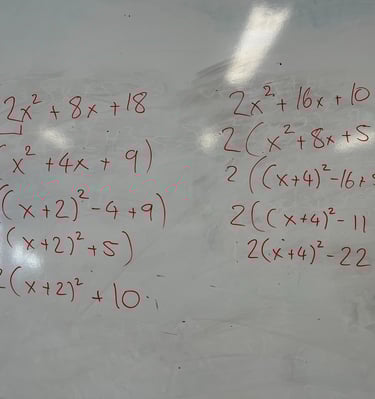 2x² + 8x + 18
(x² + 4x + 9)
((x+2)² - 4 + 9)
(x+2)² + 5)
2(x+2)² + 10
2x² + 16x + 10
2(x² + 8x + 5
2((x+4)² - 16 +
2((x+4)² - 11
2(x+4)² - 22